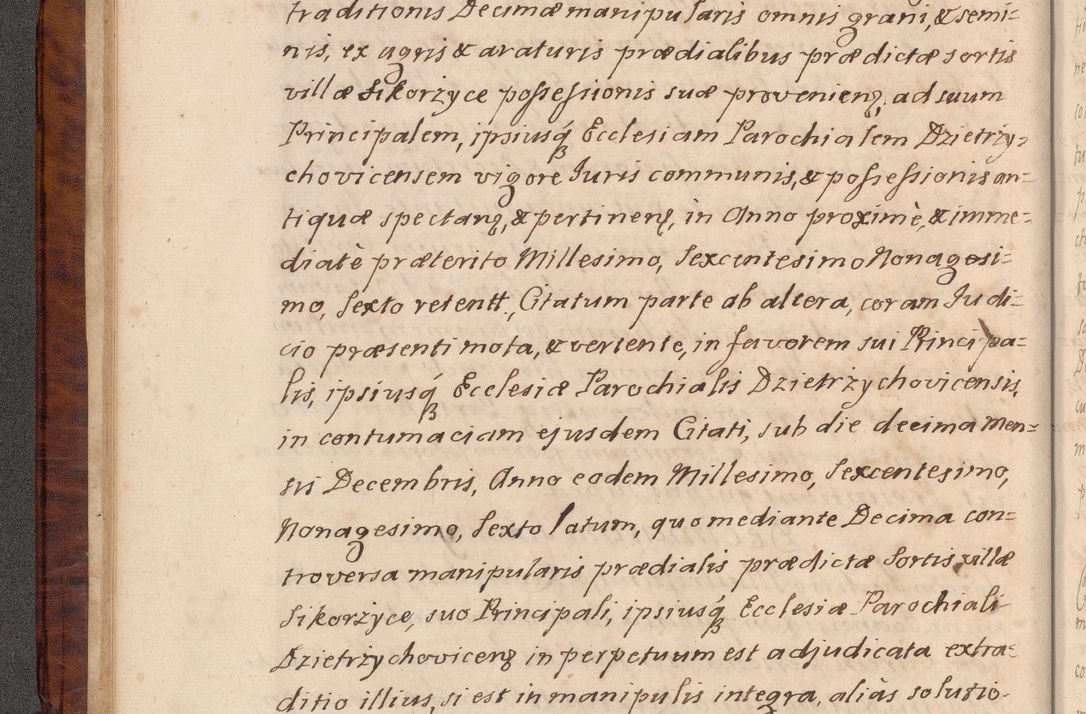 traditionis Decimæ manipularis omnis grani, & semi=
nis, ex agris & araturis prædialibus prædictæ sortis
villæ Sikorzyce possessionis suæ provenienꝫ, ad suum
Principalem, ipsiusq́ꝫ Ecclesiam Parochialem Dzietrzy=
chovicensem vigore Juris communis, & possessionis an=
tiquæ spectanꝫ, & pertinenꝫ, in Anno proximè, & imme=
diatè præterito Millesimo, Sexcentesimo Nonagesi=
mo, Sexto retentt, Citatum parte ab altera, coram Judi=
cio præsenti mota, & vertente, in favorem sui Principa=
lis, ipsiusq́ꝫ Ecclesiæ Parochialis Dzietrzychovicensis,
in contumaciam ejusdem Citati, sub die decima Men=
sis Decembris, Anno eodem Millesimo, Sexcentesimo,
Nonagesimo, Sexto latum, quo mediante Decima con=
troversa manipularis prædialis prædictæ Sortis villæ
Sikorzyce, suo Principali, ipsiusq́ꝫ Ecclesiæ Parochiali
Dzietrzychovicenꝫ in perpetuum est adjudicata extra=
ditio illius, si est in manipulis integra, aliàs solutio-